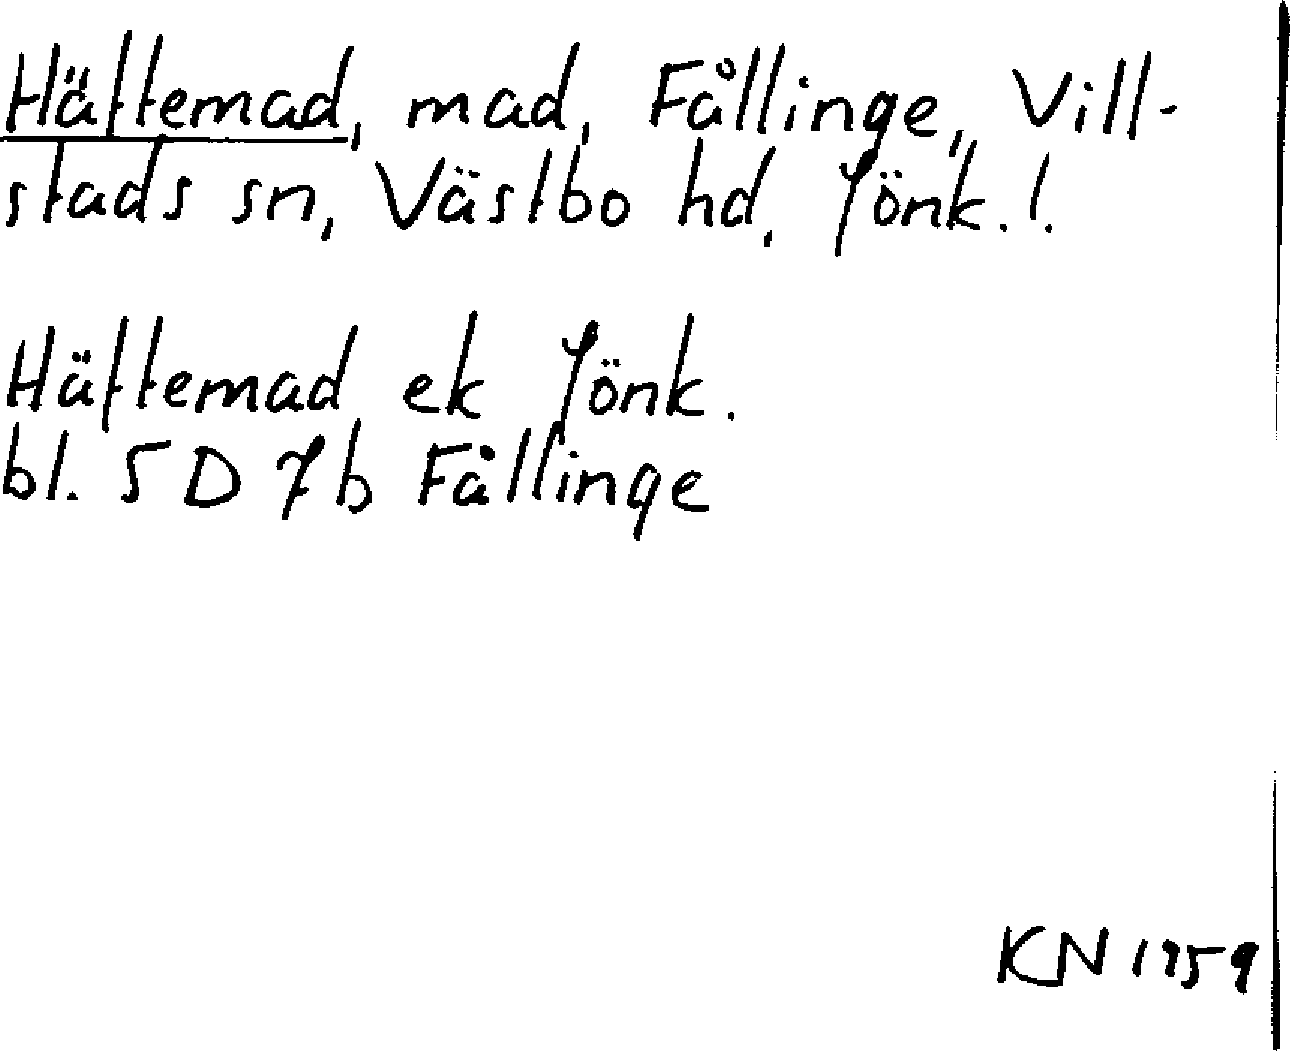 Häftemad, mad, Fållinge, Vill-
stads sn, Västbo hd, Jönk. l.
Häftemad ek Jönk.
bl. 5 D 7b Fållinge
KN 1959